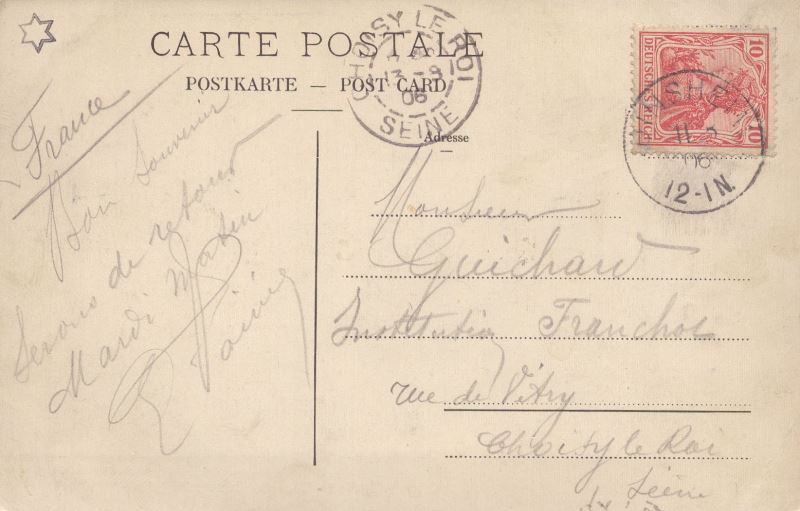 CARTE POSTALE
POSTKARTE — POST CARD
CHOISY LE ROI
13 -8
06
SEINE
DEUTSCHES REICH
10 10
11 8
06
12-1N.
France
Bon Souvenir
Serons de retour
Mardi Matin
Adresse
Monsieur
Guichard
Institution Franchot
rue de Vitry
Choisy le Roi
Seine